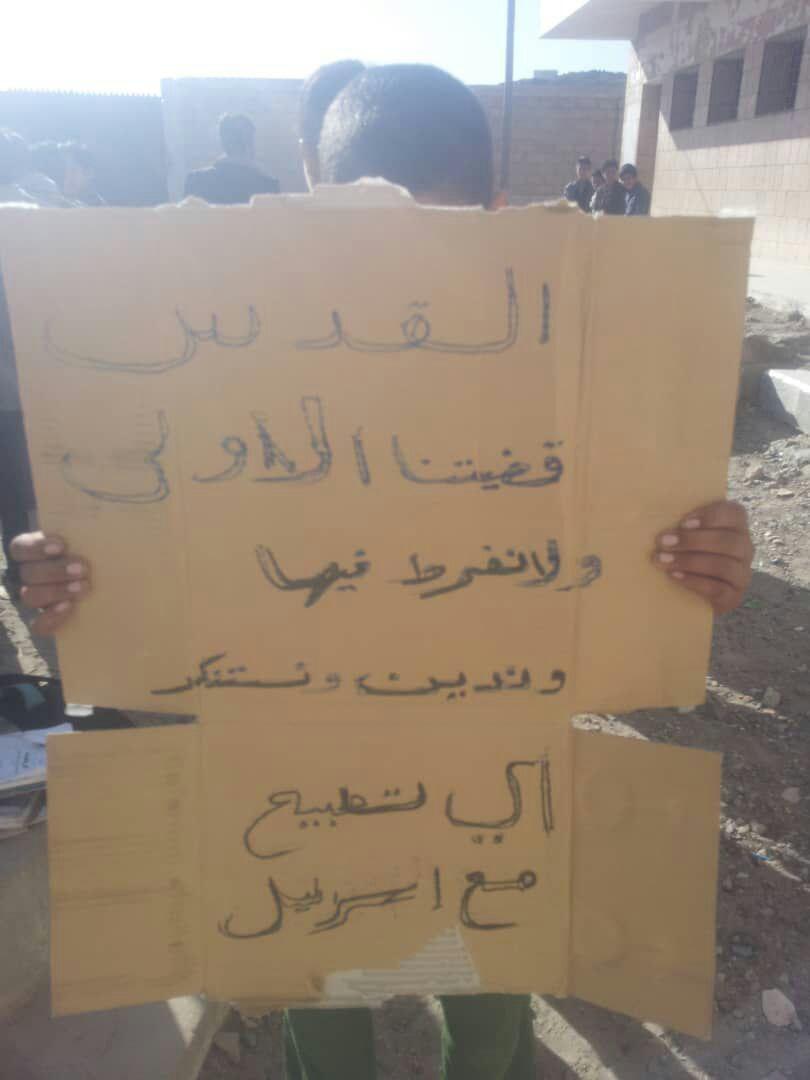 القدس
قضيتنا الاولى
ولانفرط فيها
وندين ونستنكر
اي تطبيع
مع اسرئيل